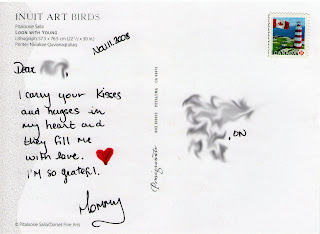 INUIT ART BIRDS
Pitaloosie Saila
LOON WITH YOUNG
Lithograph 57.3 × 76.5 cm (22 ½ × 30 in.)
Printer: Niviaksie Quvianaqtuliaq
Nov 11. 2008
Dear
I carry your kisses
and hugses in
my heart and
they fill me
with love.
I'm so grateful.
Mommy
, ON
Pomegranate
CANADA
© Pitaloosie Saila/Dorset Fine Arts